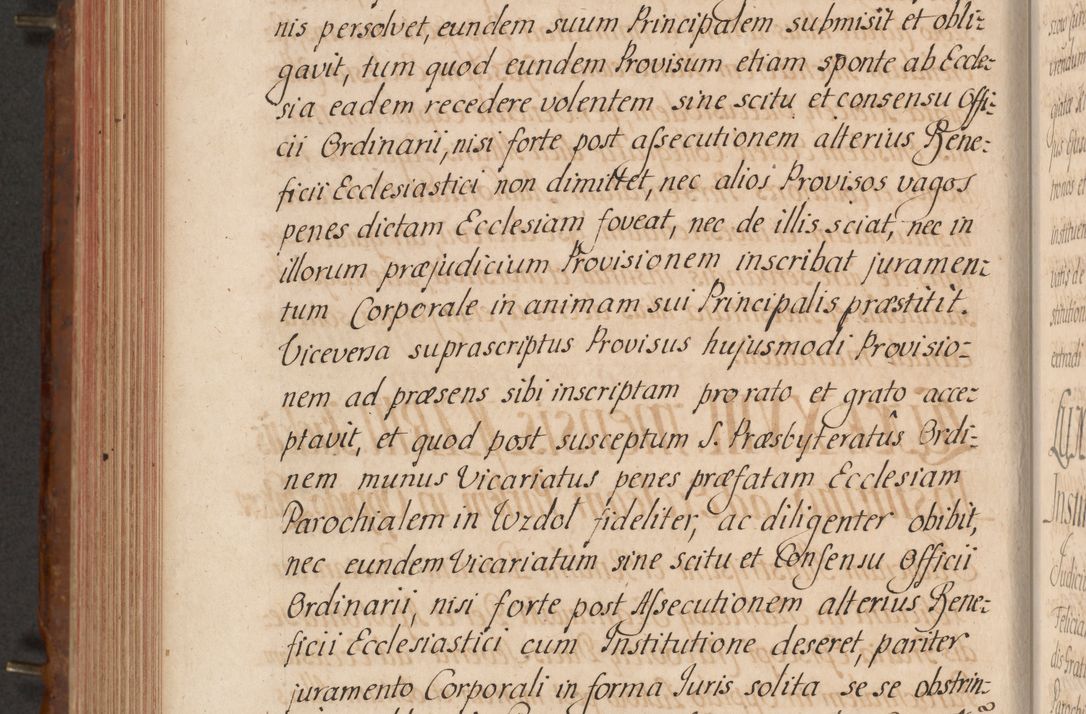 nis persolvet, eundem suum Principalem submisit et obli-
gavit, tum quod eundem Provisum etiam sponte ab Eccle-
sia eadem recedere volentem sine scitu et consensu Offi-
cii Ordinarii, nisi forte post assecutionem alterius Bene-
ficii Ecclesiastici non dimittet, nec alios Provisos vagos
penes dictam Ecclesiam foveat, nec de illis sciat, nec in
illorum præjudicium Provisionem inscribat juramen-
tum Corporale in animam sui Principalis præstitit.
Viceversa suprascriptus Provisus hujusmodi Provisio-
nem ad præsens sibi inscriptam pro rato et grato acce-
ptavit, et quod post susceptum S. Præsbyteratûs Ordi-
nem munus Vicariatus penes præfatam Ecclesiam
Parochialem in Wzdol fideliter, ac diligenter obibit,
nec eundem Vicariatum sine scitu et Consensu Officii
Ordinarii, nisi forte post Assecutionem alterius Bene-
ficii Ecclesiastici cum Institutione deseret, pariter
juramento Corporali in forma Juris solita se se obstrin-